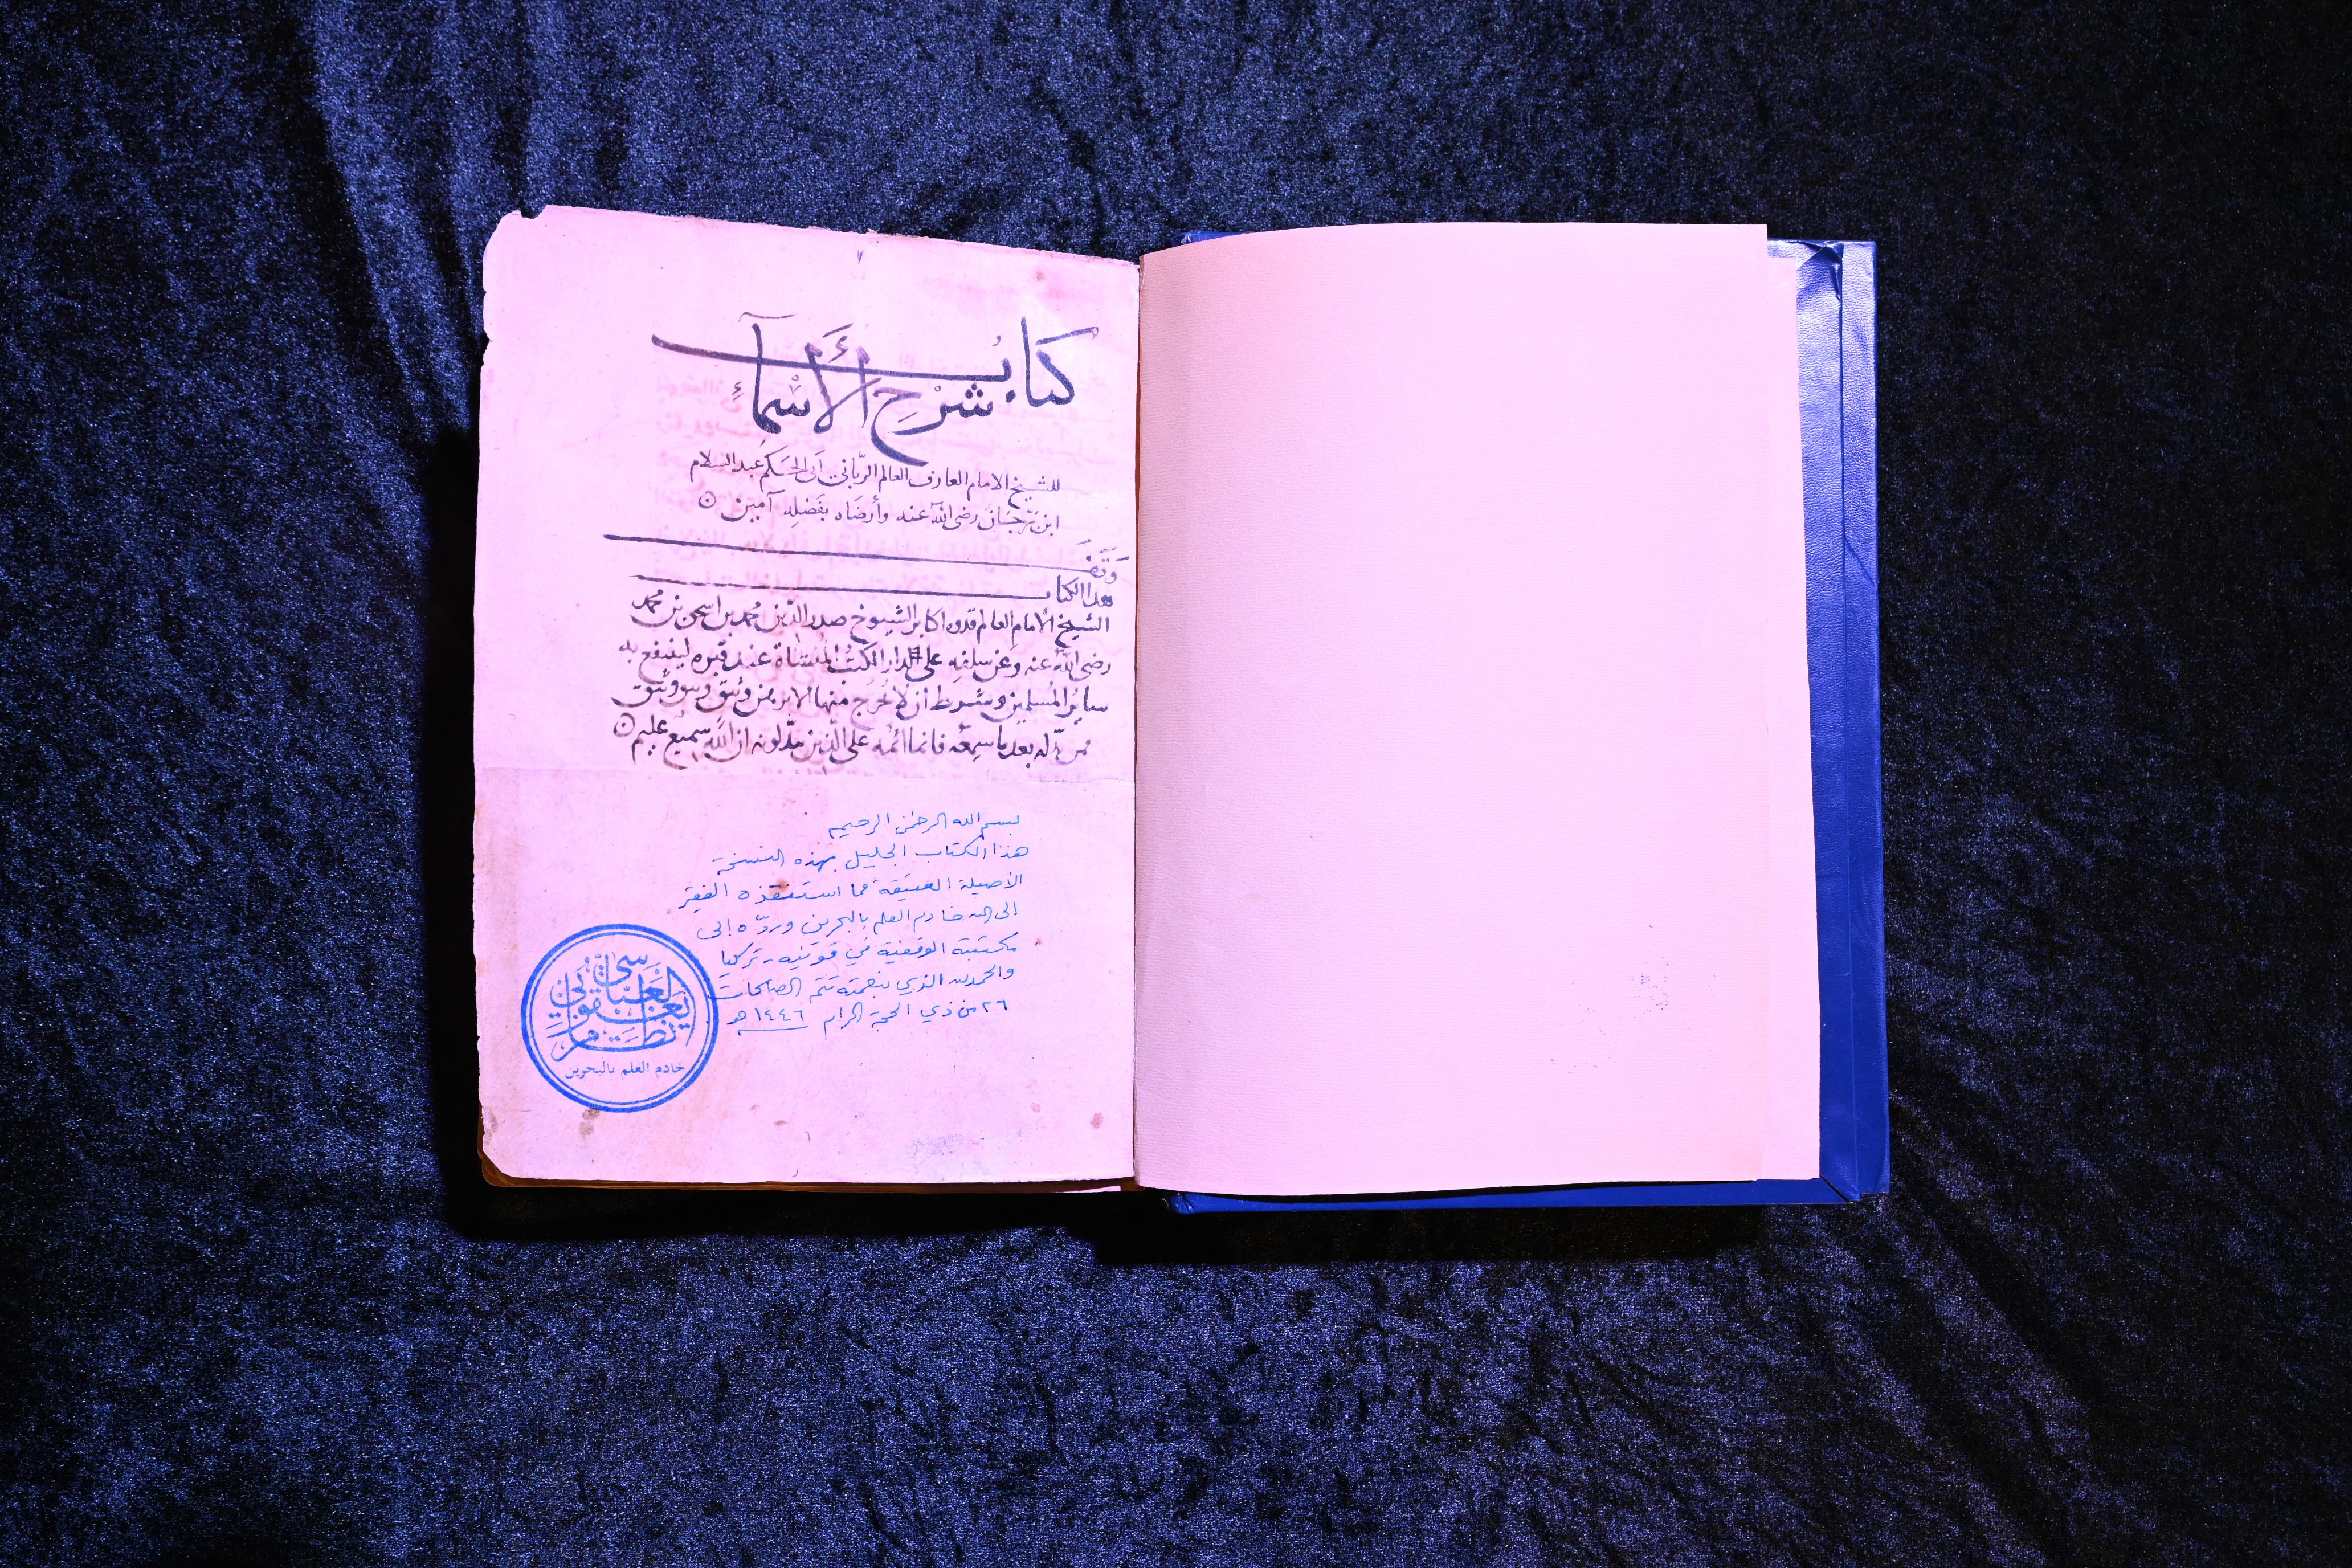 كتاب
شرح الأسماء
للشيخ الامام العارف العالم الرباني أبى الحكم عبد السلام
ابن برجان رضى الله عنه وأرضاه بفضله آمين
وقف
هذا الكتاب
الشيخ الامام العالم قدوه اكابر الشيوخ صدر الدين محمد بن اسحق بن محمد
رضى الله عنه وعن سلفه على دار الكتب المنشاة عند قبره لينتفع به
سائر المسلمين وشرط ان لا تخرج منها الا برهن وثيق
فمن بدله بعد ما سمعه فانما اثمه على الذين يبدلونه ان الله سميع عليم
بسم الله الرحمن الرحيم
هذا الكتاب الجليل بهذه النسخة
الأصيلة العتيقة مما استنقذه الفقير
إلى الله خادم العلم بالبحرين وردّه إلى
مكتبته الوقفية في قونيه - تركيا
والحمد لله الذي بنعمته تتم الصالحات
٢٦ من ذي الحجة الحرام ١٤٤٦ هـ
نظام يعقوبي العباسي
خادم العلم بالبحرين